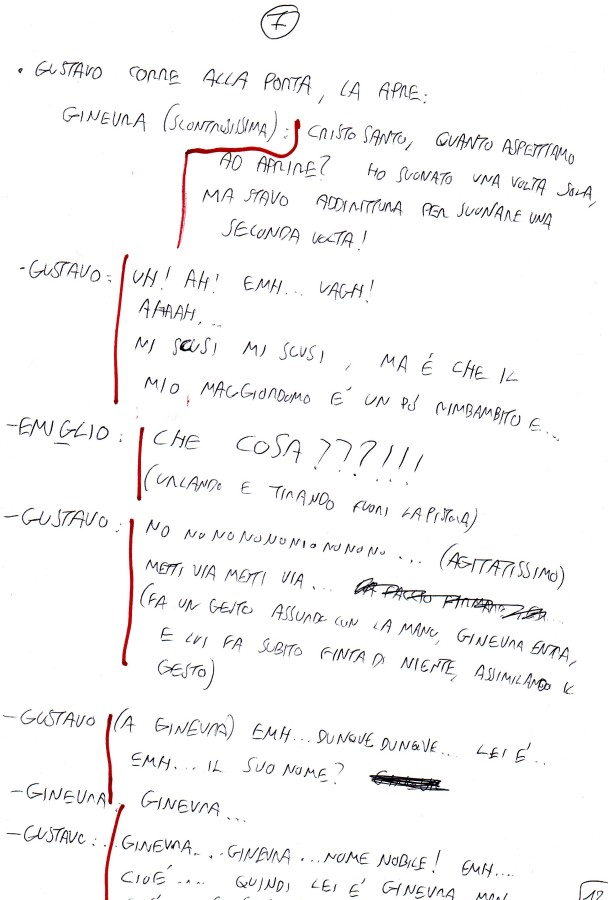 7
• GUSTAVO CORRE ALLA PORTA, LA APRE:
GINEVRA (SCONTROSISSIMA): CRISTO SANTO, QUANTO ASPETTIAMO
AD APRIRE? HO SUONATO UNA VOLTA SOLA,
MA STAVO ADDIRITTURA PER SUONARE UNA
SECONDA VOLTA!
- GUSTAVO: UH! AH! EMH... VAGH!
AHAAH...
MI SCUSI MI SCUSI, MA É CHE IL
MIO MAGGIORDOMO E' UN PÓ RIMBAMBITO E...
- EMIGLIO: CHE COSA???!!!
(URLANDO E TIRANDO FUORI LA PISTOLA)
- GUSTAVO: NO NO NO NO NO NO NO NO NO... (AGITATISSIMO)
METTI VIA METTI VIA...
(FA UN GESTO ASSURDO CON LA MANO, GINEVRA ENTRA,
E LUI FA SUBITO FINTA DI NIENTE, ASSIMILANDO IL
GESTO)
- GUSTAVO (A GINEVRA) EMH... DUNQUE DUNQUE... LEI E'...
EMH... IL SUO NOME?
- GINEVRA: GINEVRA...
- GUSTAVO: GINEVRA... GINEVRA... NOME NOBILE! EMH...
CIOÉ.... QUINDI LEI É GINEVRA
12